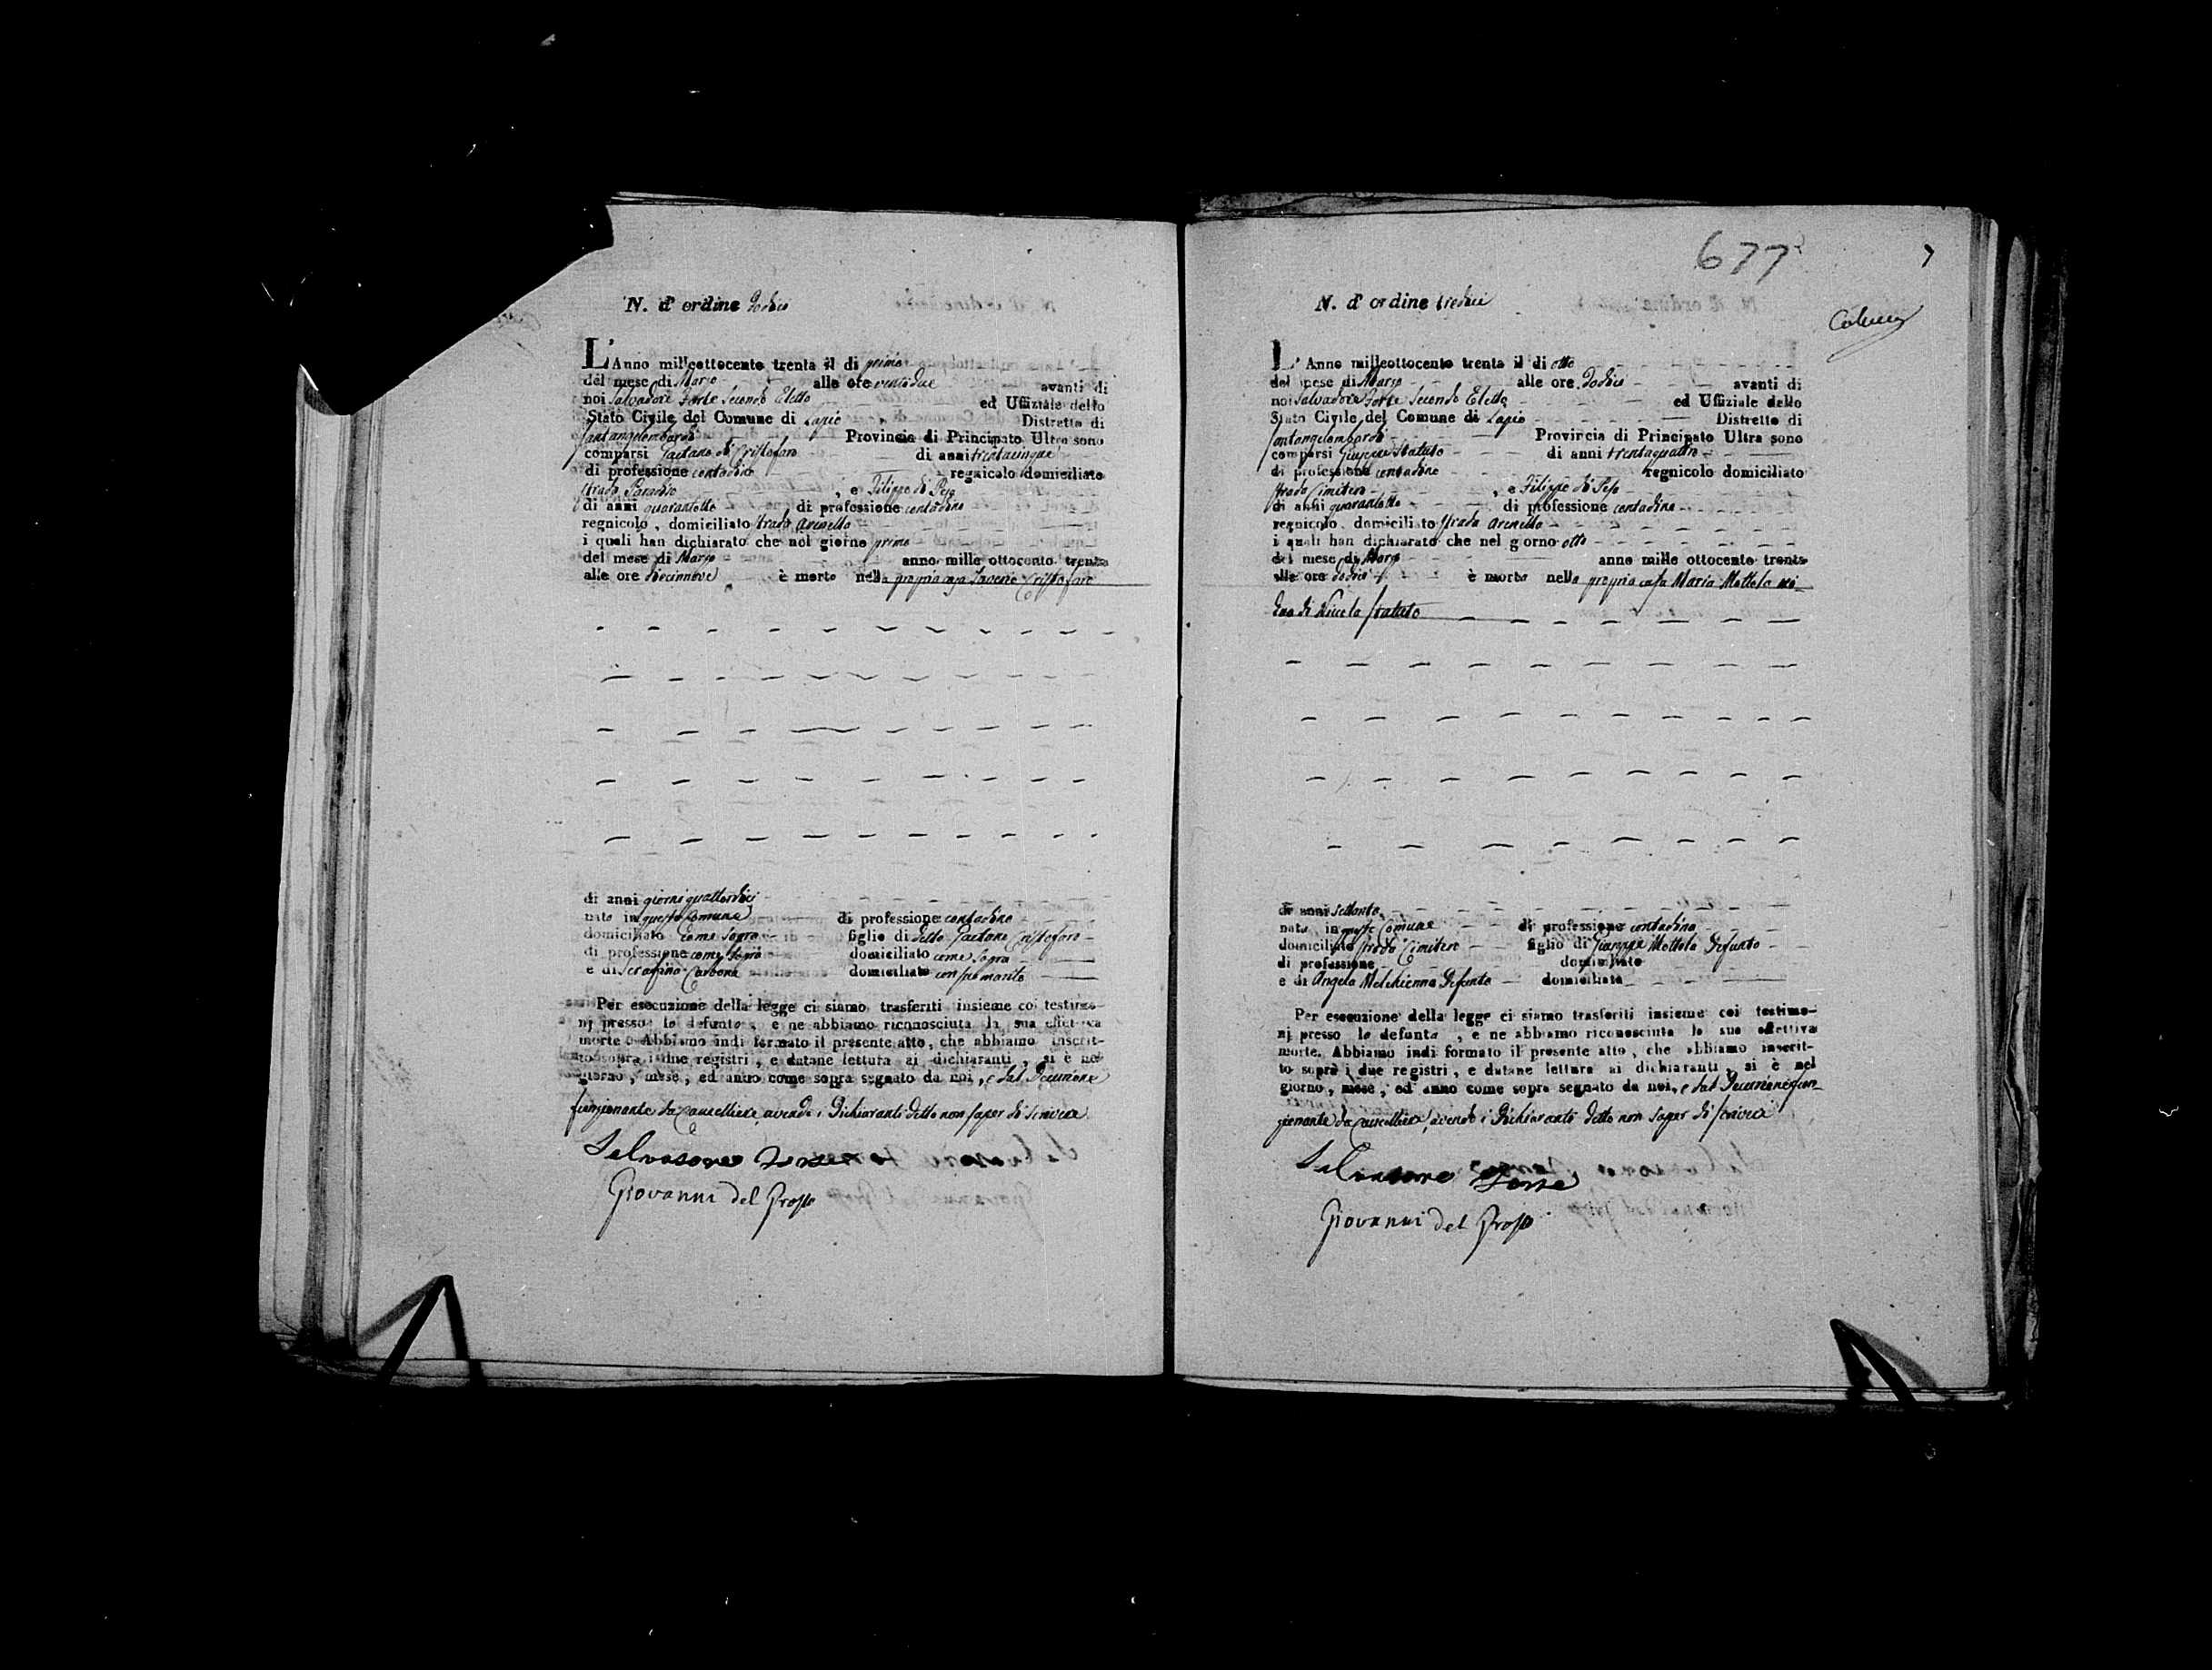 N. d' ordine Dodici
L' Anno milleottocento trenta il di primo
del mese di Marzo alle ore ventidue avanti di
noi Salvadore Forte Secondo Eletto ed Uffiziale dello
Stato Civile del Comune di Lapio Distretto di
Santangelombardi Provincia di Principato Ultra sono
comparsi Gaetano di Cristofaro di anni trentacinque
di professione contadino regnicolo domiciliato
strada Paradiso , e Filippo di Peso
di anni quarantotto di professione contadino
regnicolo , domiciliato strada Arenella
i quali han dichiarato che nel giorno primo
del mese di Marzo anno mille ottocento trenta
alle ore diecinnove è morto nella propria casa Cristofaro
di anni giorni quattordici
nato in questo Comune di professione contadino
domiciliato come sopra figlio di detto Gaetano Cristofaro
di professione come sopra domiciliato come sopra
e di Serafina Carbone domiciliato con suo marito
Per esecuzione della legge ci siamo trasferiti insieme coi testimo-
nj presso lo defunto , e ne abbiamo riconosciuta la sua effettiva
morte . Abbiamo indi formato il presente atto , che abbiamo inscrit-
to sopra i due registri , e datane lettura ai dichiaranti , si è nel
giorno , mese , ed anno come sopra segnato da noi , e dal Decurione
funzionante da Cancelliere, avendo i Dichiaranti detto non saper di scrivere
Salvadore Forte
Giovanni del Grosso
677
7
N. d' ordine tredici
L' Anno milleottocento trenta il di otto
del mese di Marzo alle ore Dodici avanti di
noi Salvadore Forte Secondo Eletto ed Uffiziale dello
Stato Civile del Comune di Lapio Distretto di
Santangelombardi Provincia di Principato Ultra sono
comparsi Giuseppe Statuto di anni trentaquattro
di professione contadino regnicolo domiciliato
strada Cimitero , e Filippo di Peso
di anni quarantotto di professione contadino
regnicolo domiciliato strada Arenella
i quali han dichiarato che nel giorno otto
del mese di Marzo anno mille ottocento trenta
alle ore dodici è morta nella propria casa Maria Mottola ve-
dova di Nicola Statuto
di anni settanta
nata in questo Comune di professione contadina
domiciliata strada Cimitero figlio di Giuseppe Mottola defunto
di professione domiciliato
e di Angela Melchionna defunta domiciliata
Per esecuzione della legge ci siamo trasferiti insieme coi testimo-
nj presso la defunta , e ne abbiamo riconosciuta la sua effettiva
morte. Abbiamo indi formato il presente atto , che abbiamo inscrit-
to sopra i due registri , e datane lettura ai dichiaranti , si è nel
giorno , mese , ed anno come sopra segnato da noi, e dal Decurione fun-
zionante da Cancelliere, avendo i Dichiaranti detto non saper di scrivere
Salvadore Forte
Giovanni del Grosso